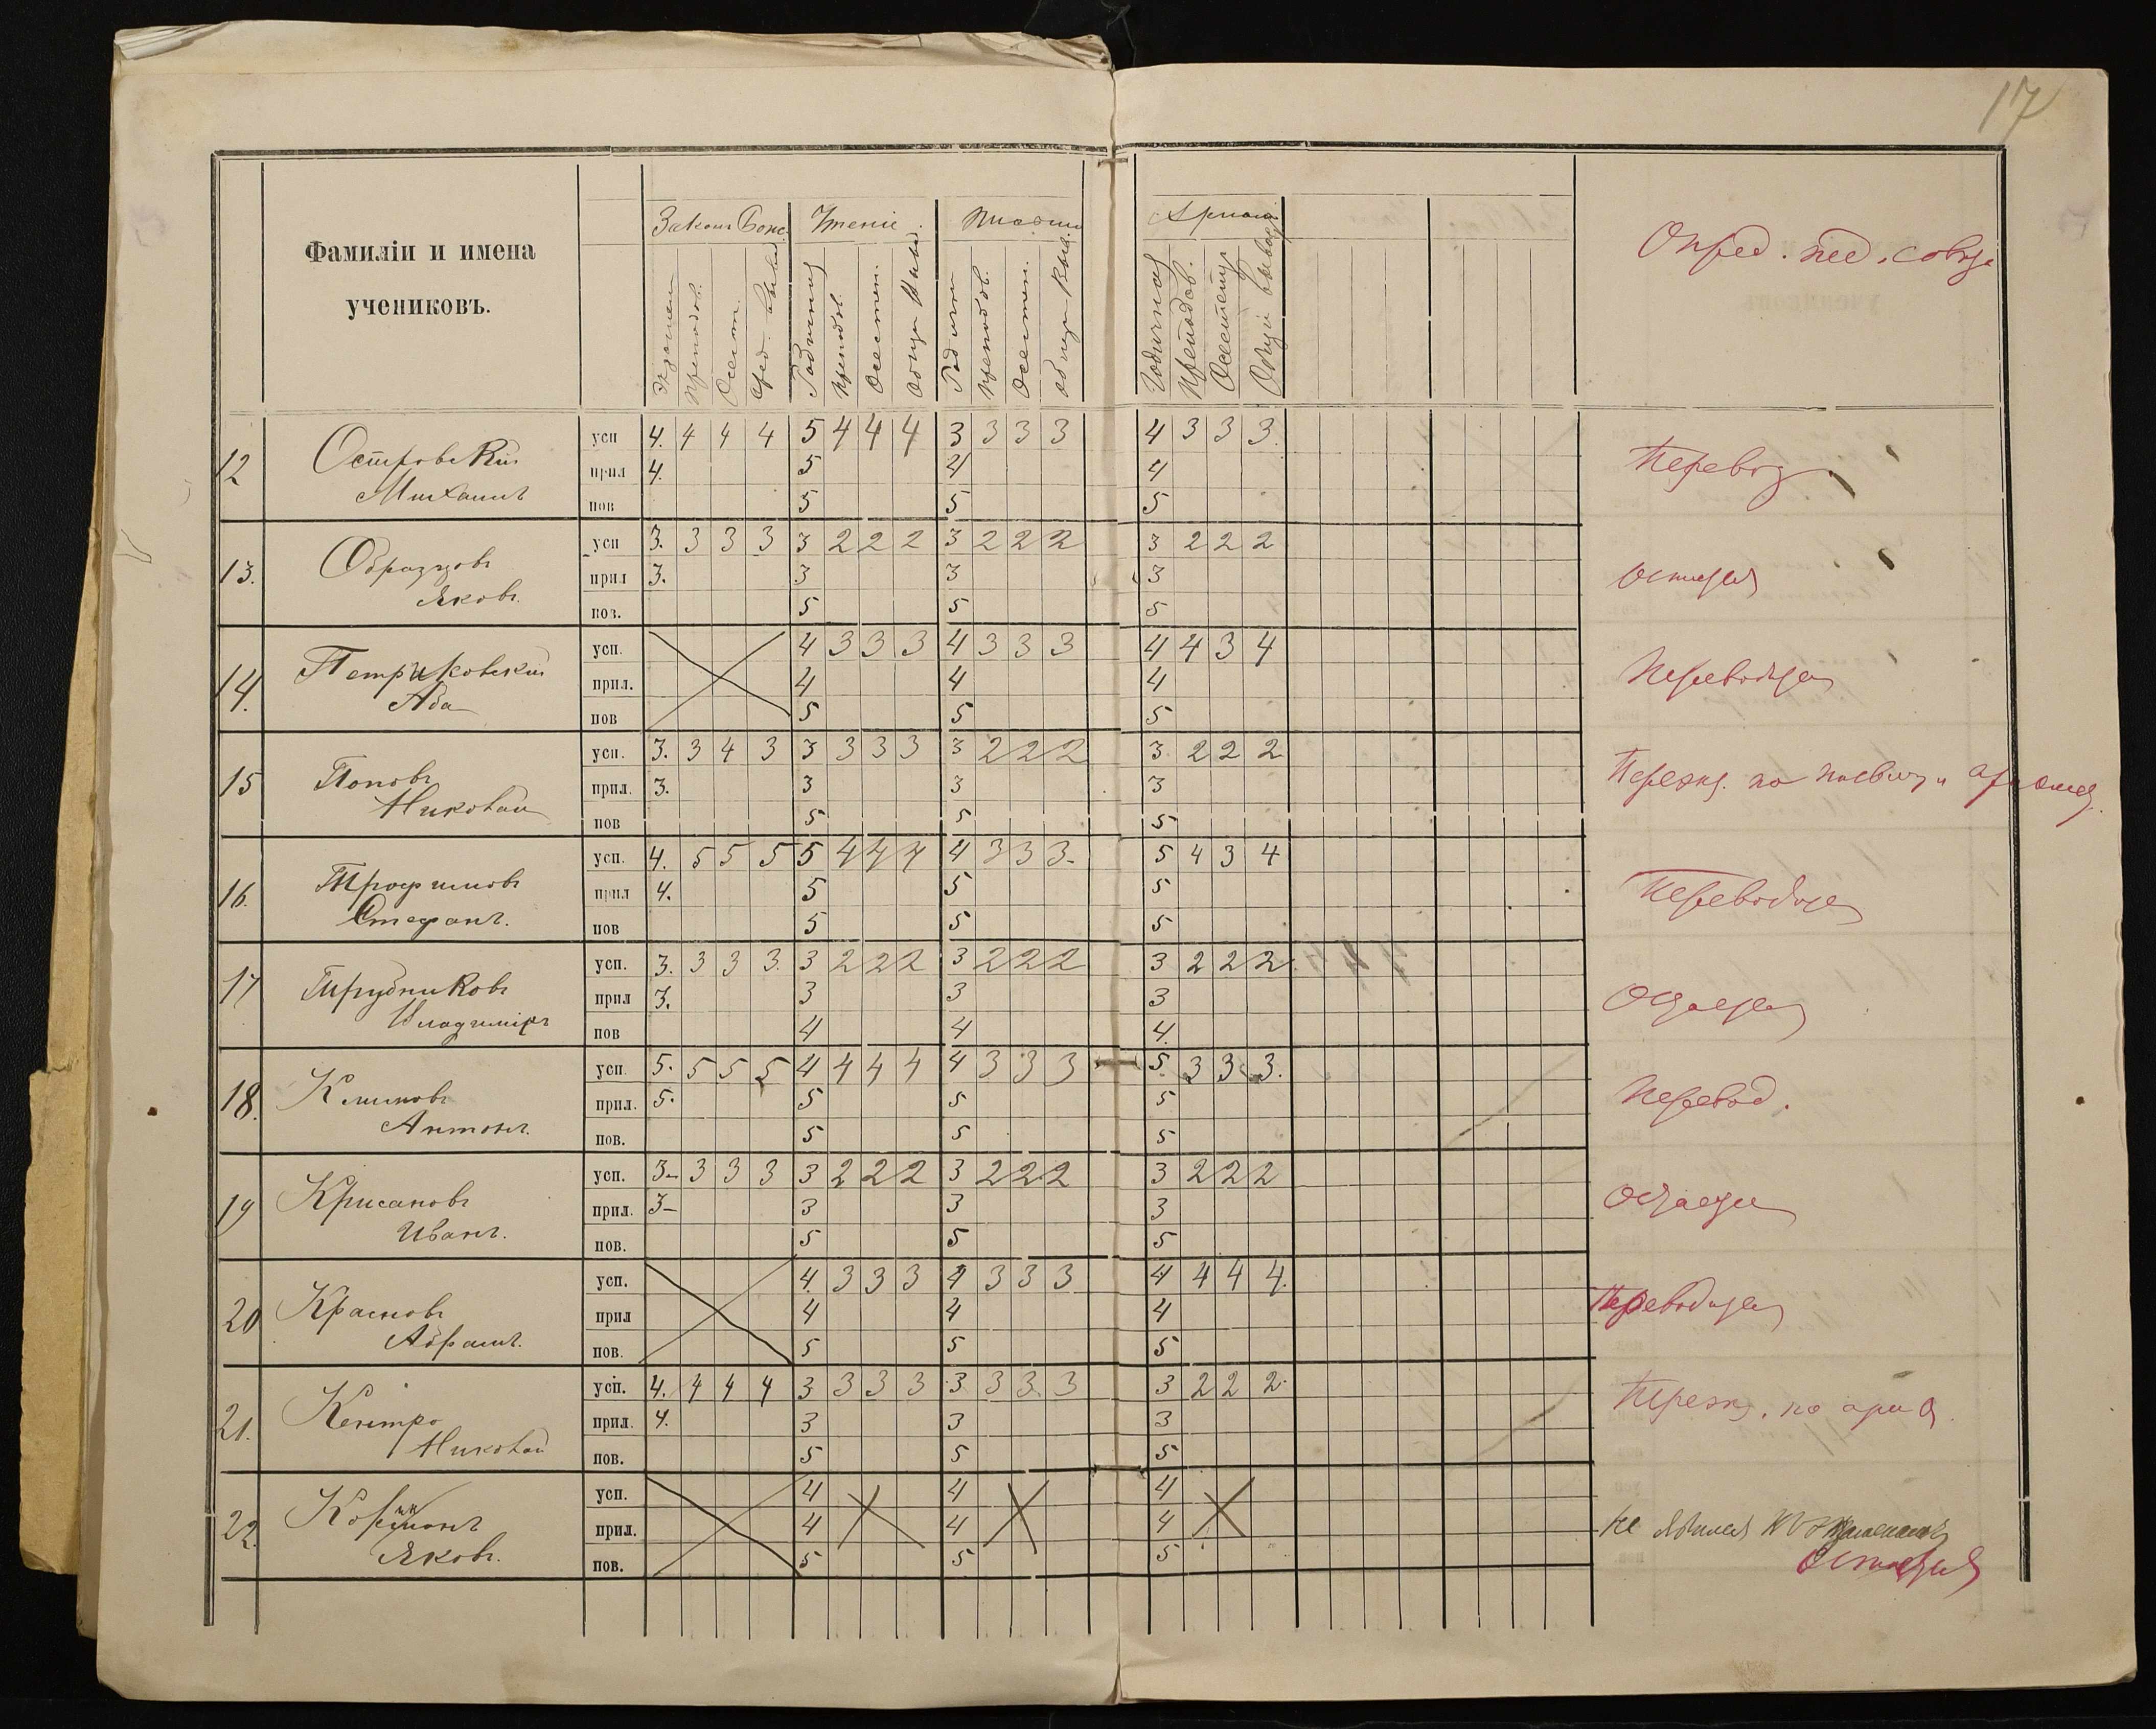 17
Фамиліи и имена
учениковъ.
Законъ Бож. Чтеніе. Письмо Арием
Опред. пед. совѣта
Годичная Преподов. Осестт. Общій выводъ
12 Островскій усп 4. 4 4 4 5 4 4 4 3 3 3 3 4 3 3 3. Перевод.
прил 4. 5 4 4
Михаилъ пов 5 5 5
13. Образцовъ усп 3. 3 3 3 3 2 2 2 3 2 2 2 3 2 2 2
прил 3. 3 3 3
Яковъ. пов. 5 5 5
14. Петриковскій усп. 4 3 3 3 4 3 3 3 4 4 3 4 Переводится
прил. 4 4 4
Аба пов 5 5 5
15 Поповъ усп. 3. 3 4 3 3 3 3 3 3 2 2 2 3 2 2 2 Переэкз. по письму и
прил. 3. 3 3 3
Николай пов 5 5 5
16. Трофимовъ усп. 4. 5 5 5 5 4 4 4 4 3 3 3. 5 4 3 4 Переводится
прил 4. 5 5 5
Стефанъ. пов 5 5 5
17 Трудниковъ усп. 3. 3 3 3. 3 2 2 2 3 2 2 2 3 2 2 2 Остается
прил 3. 3 3 3
Владиміръ пов 4 4 4.
18. Климовъ усп. 5. 5 5 5 4 4 4 4 4 3 3 3 5 3 3 3. Перевод.
прил. 5. 5 5 5
Антонъ. пов. 5 5 5
19 Крисановъ усп. 3 3 3 3 3 2 2 2 3 2 2 2 3 2 2 2 Остается
прил. 3 3 3 3
Иванъ. пов. 5 5 5
20 Красновъ усп. 4. 3 3 3 4 3 3 3 4 4 4 4. Переводится
прил 4 4 4
Абрамъ. пов. 5 5 5
21. Кентро усп. 4. 4 4 4 3 3 3 3 3 3 3 3 3 2 2 2 Переэкз. по арием.
прил. 4. 3 3 3
Николай пов. 5 5 5
22. усп. 4 4 4
прил. 4 4 4 не явился къ экзаменамъ
Яковъ. пов. 5 5 5 Остается